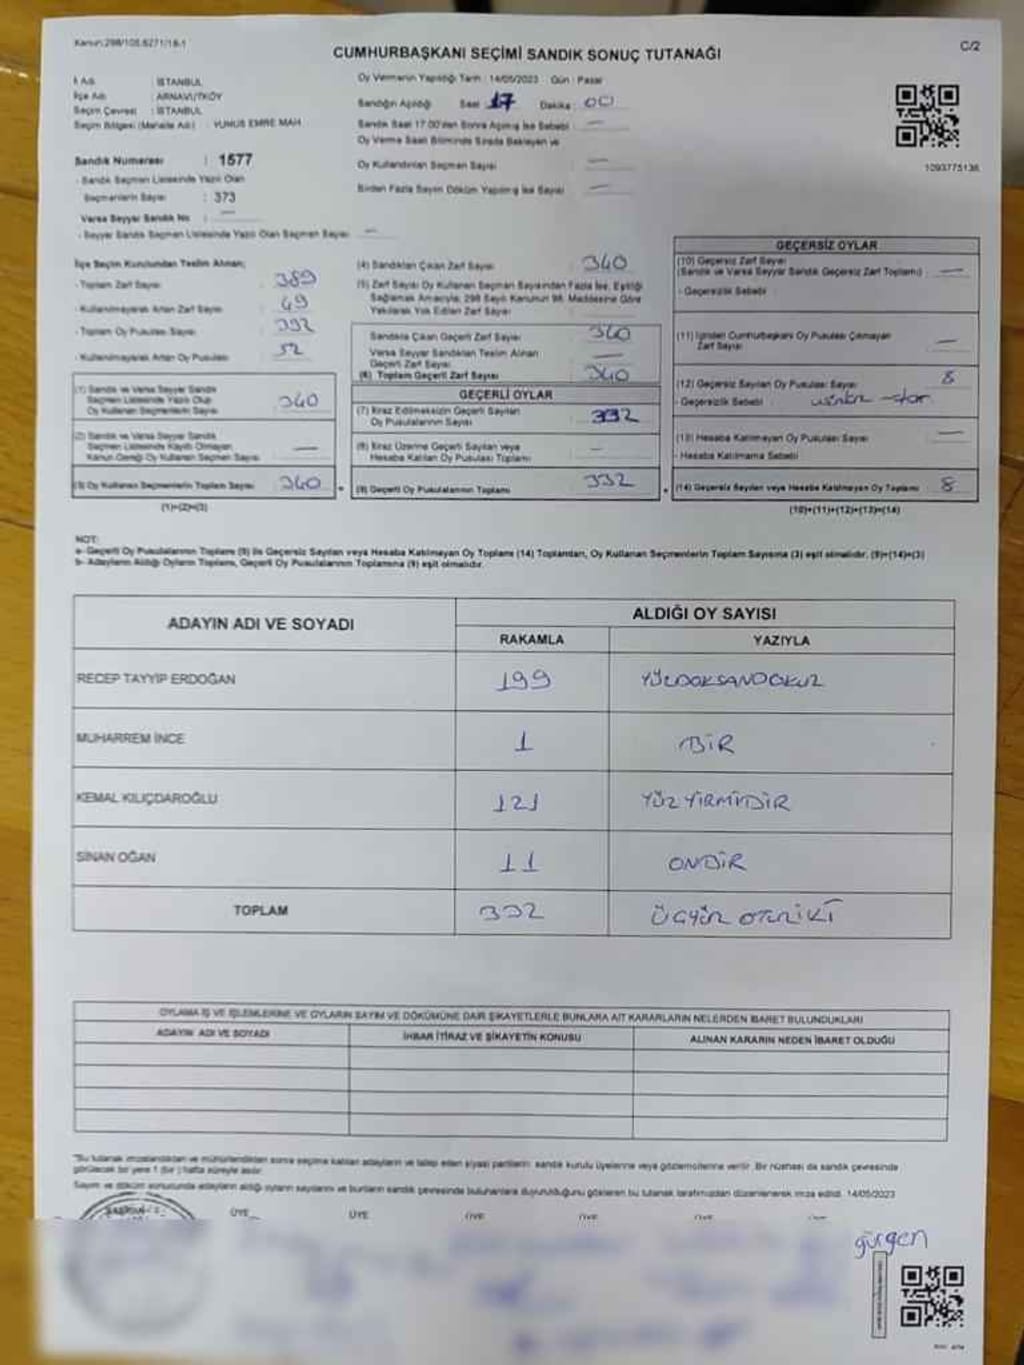 Kanun:298/105,6271/18-1
C/2
CUMHURBAŞKANI SEÇİMİ SANDIK SONUÇ TUTANAĞI
İl Adı : İSTANBUL
İlçe Adı : ARNAVUTKÖY
Seçim Çevresi : İSTANBUL
Seçim Bölgesi (Mahalle Adı) : YUNUS EMRE MAH.
Sandık Numarası : 1577
- Sandık Seçmen Listesinde Yazılı Olan
Seçmenlerin Sayısı : 373
Varsa Seyyar Sandık No : —
- Seyyar Sandık Seçmen Listesinde Yazılı Olan Seçmen Sayısı : —
Oy Vermenin Yapıldığı Tarih : 14/05/2023 Gün : Pazar
Sandığın Açıldığı Saat 17 Dakika : 00
Sandık Saat 17.00'den Sonra Açılmış İse Sebebi : —
Oy Verme Saati Bitiminde Sırada Bekleyen ve
Oy Kullandırılan Seçmen Sayısı : —
Birden Fazla Sayım Döküm Yapılmış İse Sayısı : —
1093775136
İlçe Seçim Kurulundan Teslim Alınan;
- Toplam Zarf Sayısı : 389
- Kullanılmayarak Artan Zarf Sayısı : 49
- Toplam Oy Pusulası Sayısı : 392
- Kullanılmayarak Artan Oy Pusulası : 52
(1) Sandık ve Varsa Seyyar Sandık
Seçmen Listesinde Yazılı Olup
Oy Kullanan Seçmenlerin Sayısı : 340
(2) Sandık ve Varsa Seyyar Sandık
Seçmen Listesinde Kayıtlı Olmayan
Kanun Gereği Oy Kullanan Seçmen Sayısı : —
(3) Oy Kullanan Seçmenlerin Toplam Sayısı : 340
(1)+(2)=(3)
(4) Sandıktan Çıkan Zarf Sayısı : 340
(5) Zarf Sayısı Oy Kullanan Seçmen Sayısından Fazla İse, Eşitliği
Sağlamak Amacıyla, 298 Sayılı Kanunun 98. Maddesine Göre
Yakılarak Yok Edilen Zarf Sayısı : —
Sandıkta Çıkan Geçerli Zarf Sayısı : 340
Varsa Seyyar Sandıktan Teslim Alınan
Geçerli Zarf Sayısı : —
(6) Toplam Geçerli Zarf Sayısı : 340
GEÇERLİ OYLAR
(7) İtiraz Edilmeksizin Geçerli Sayılan
Oy Pusulalarının Sayısı : 332
(8) İtiraz Üzerine Geçerli Sayılan veya
Hesaba Katılan Oy Pusulası Toplamı : —
(9) Geçerli Oy Pusulalarının Toplamı : 332
GEÇERSİZ OYLAR
(10) Geçersiz Zarf Sayısı
(Sandık ve Varsa Seyyar Sandık Geçersiz Zarf Toplamı) : —
- Geçersizlik Sebebi :
(11) İçinden Cumhurbaşkanı Oy Pusulası Çıkmayan
Zarf Sayısı : —
(12) Geçersiz Sayılan Oy Pusulası Sayısı : 8
- Geçersizlik Sebebi :
(13) Hesaba Katılmayan Oy Pusulası Sayısı : —
- Hesaba Katılmama Sebebi :
(14) Geçersiz Sayılan veya Hesaba Katılmayan Oy Toplamı : 8
(10)+(11)+(12)+(13)=(14)
NOT:
a- Geçerli Oy Pusulalarının Toplamı (9) ile Geçersiz Sayılan veya Hesaba Katılmayan Oy Toplamı (14) Toplamları, Oy Kullanan Seçmenlerin Toplam Sayısına (3) eşit olmalıdır. (9)+(14)=(3)
b- Adayların Aldığı Oyların Toplamı, Geçerli Oy Pusulalarının Toplamına (9) eşit olmalıdır.
ADAYIN ADI VE SOYADI
ALDIĞI OY SAYISI
RAKAMLA YAZIYLA
RECEP TAYYİP ERDOĞAN 199 YÜZDOKSANDOKUZ
MUHARREM İNCE 1 BİR
KEMAL KILIÇDAROĞLU 121 YÜZYİRMİBİR
SİNAN OĞAN 11 ONBİR
TOPLAM 332 ÜÇYÜZ OTUZİKİ
OYLAMA İŞ VE İŞLEMLERİNE VE OYLARIN SAYIM VE DÖKÜMÜNE DAİR ŞİKAYETLERLE BUNLARA AİT KARARLARIN NELERDEN İBARET BULUNDUKLARI
ADAYIN ADI VE SOYADI İHBAR İTİRAZ VE ŞİKAYETİN KONUSU ALINAN KARARIN NEDEN İBARET OLDUĞU
"Bu tutanak imzalandıktan ve mühürlendikten sonra seçime katılan adayların ve talep eden siyasi partilerin sandık kurulu üyelerine veya gözlemcilerine verilir. Bir nüshası da sandık çevresinde
görülecek bir yere 1 (bir) hafta süreyle asılır.
Sayım ve döküm sonucunda adayların aldığı oyların sayılarını ve bunların sandık çevresinde bulunanlara duyurulduğunu gösteren bu tutanak tarafımızdan düzenlenerek imza edildi. 14/05/2023
ÜYE ÜYE ÜYE ÜYE ÜYE
gürgen